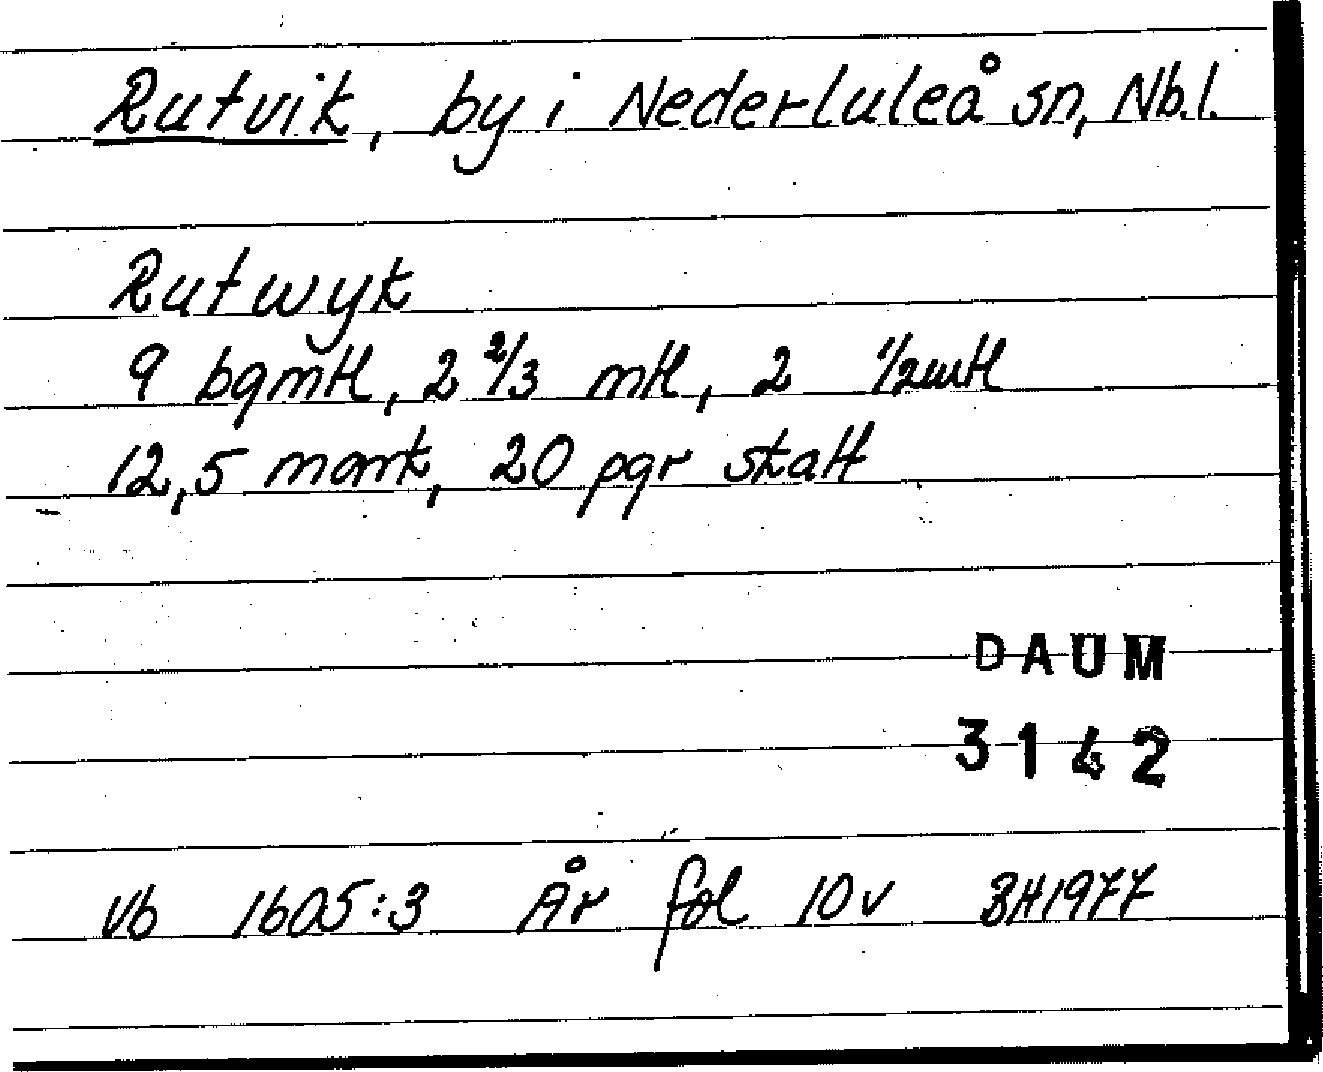 Rutvik, by i Nederluleå sn, Nb.l.
Rutwyk
9 bgmtl, 2 2/3 mtl, 2 1/2mtl
12,5 mark, 20 pgr skatt
DAUM
3142
Vb 1605:3 År fol 10v BH1977